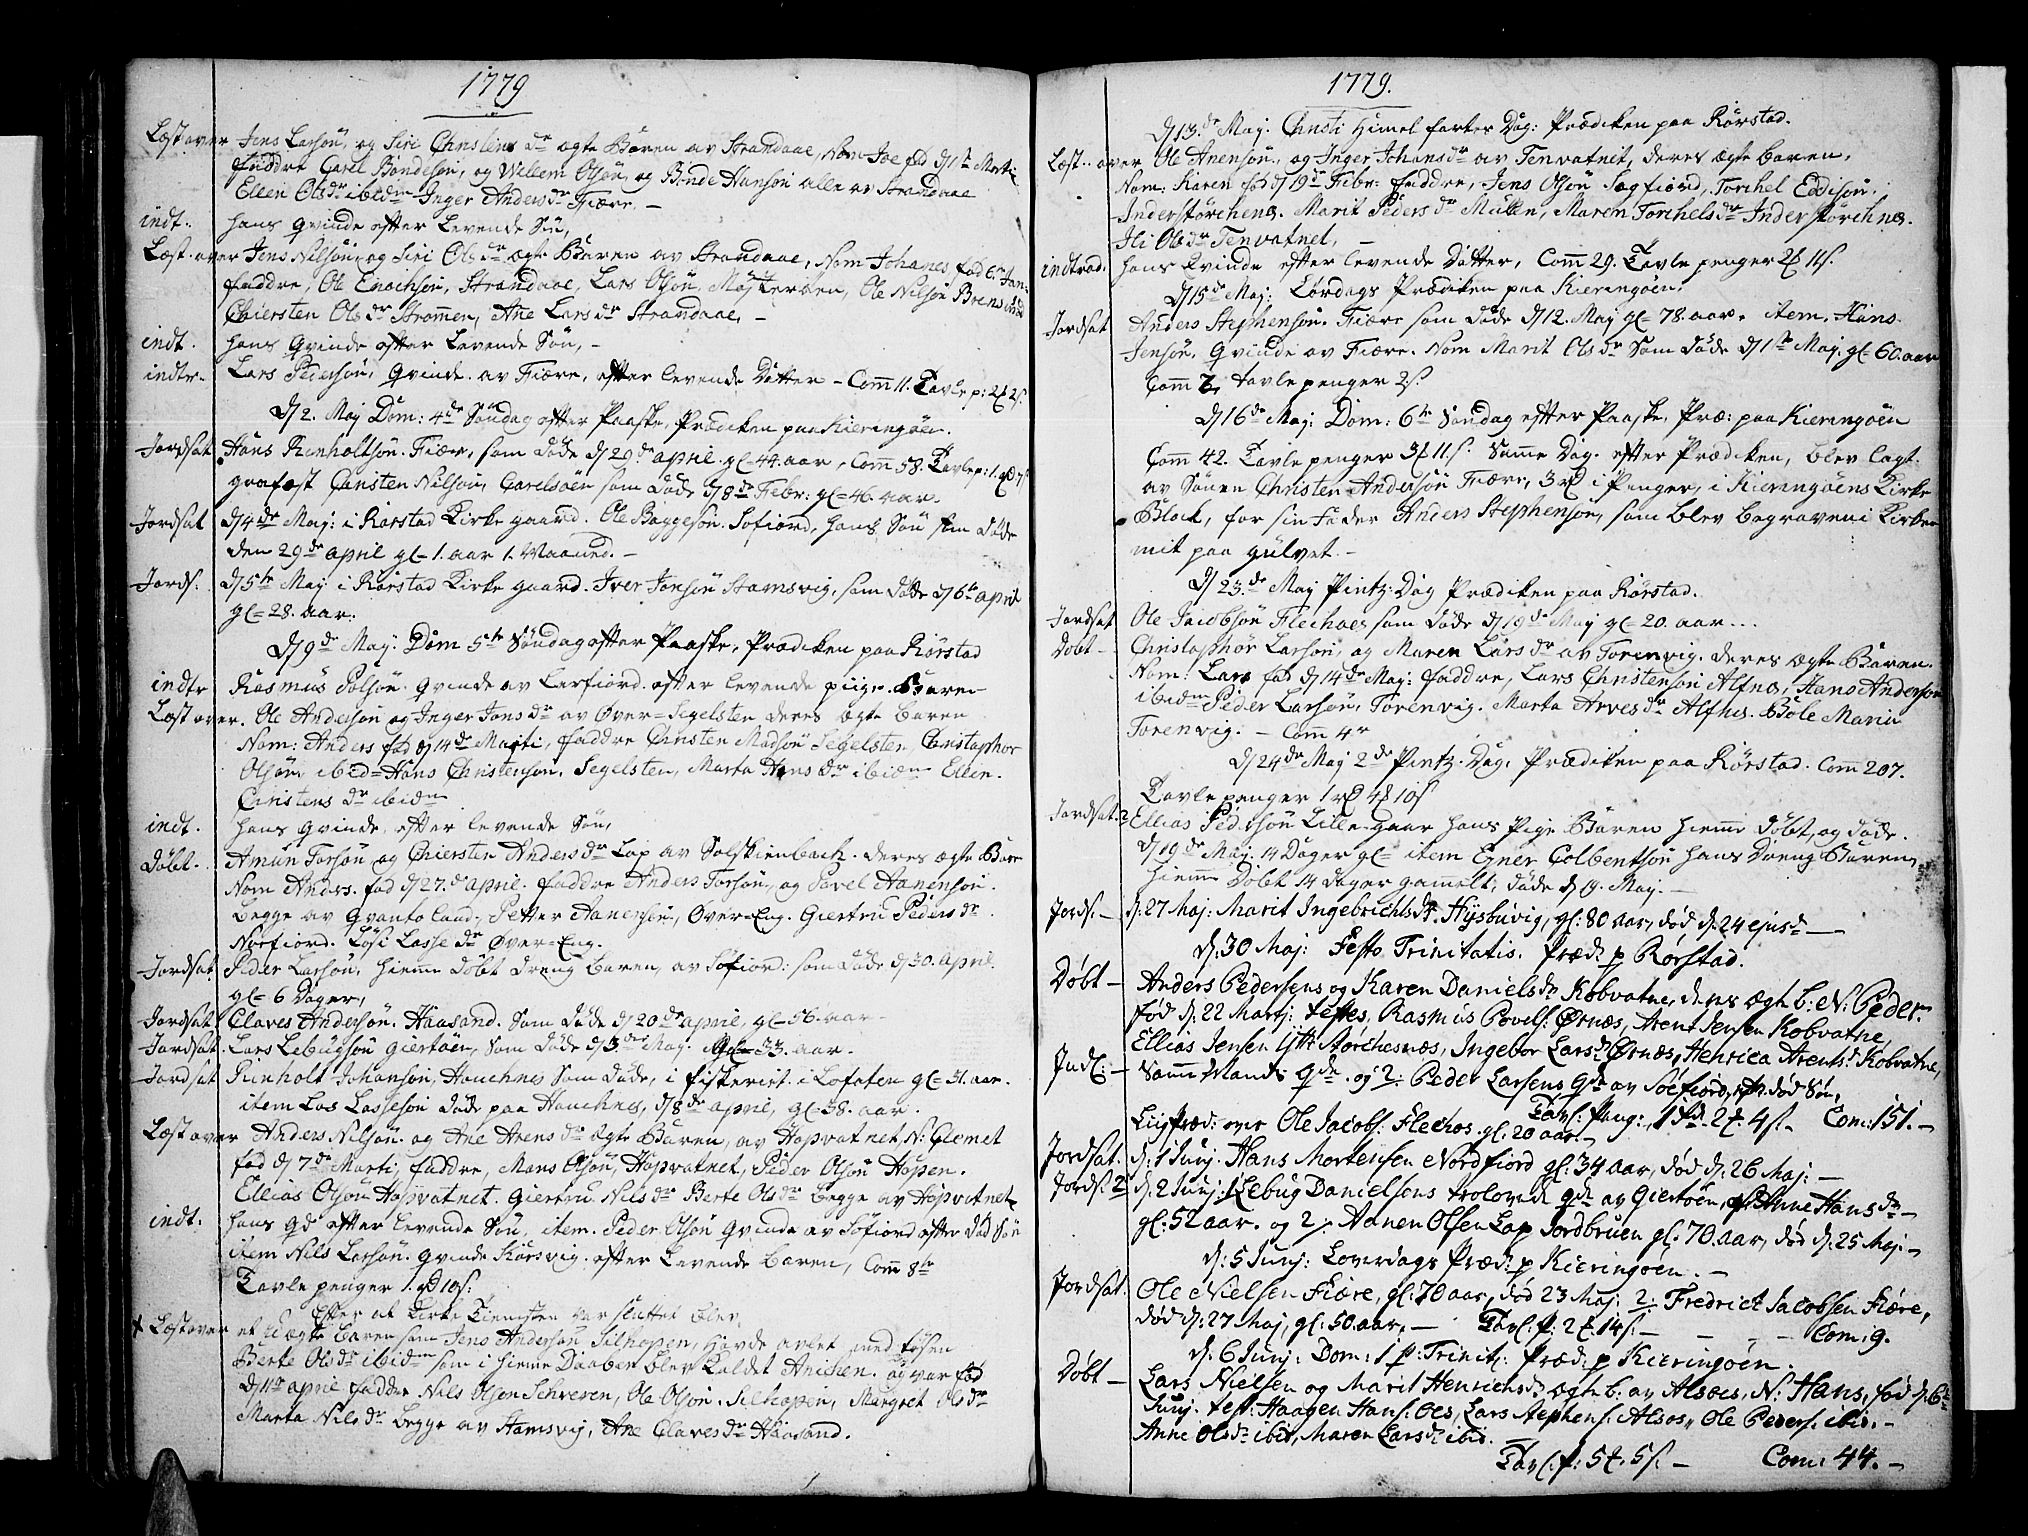 1779
Læst over Jens Larsøn, og Siri Christens dr ægte Baren av Strandaae, Nom Joe fød d 1te Martii
faddre Carel Bondesøn, og Willem Olsøn, og Bonde Hansøn alle av Strandaae
Ellen Ols dr ibidm Inger Anders dr Fiære. –
indt. hans Qvinde efter Levende Søn,
Læst over Jens Nilsøn, og Siri Ols dr ægte Baren av Strandaae, Nom Johanes fød 6te Jan:
faddre, Ole Enochsøn, Strandaae, Lars Olsøn, Ole Nilsøn
Chiersten Ols dr Strømmen, Ane Lars dr Strandaae, –
indt. hans Qvinde efter Levende Søn, –
indtr. Lars Pedersøn, Qvinde av Fiære, efter levende Datter – Com 11. Tavle p:
d 2. Maj Dom: 4de Søndag efter Paaske, Prædiken paa Kieringøen.
Jordsat Hans Reinholtsøn. Fiær, som døde d 29de april. gl= 44. aar, Com 58. Tavle p:
grafæst Christen Nilsøn, Carelsøen som døde d 8de Febr: gl= 46. aar.
Jordsat d 4de Maj: i Rørstad Kirke gaard. Ole Baggesøn. Sofiord, hans Søn som døde
den 29de april gl= 1. aar 1. Maaned. –
Jords: d 5te Maj i Rørstad Kirke gaard. Iver Jonsøn Stamsvig, som døde d 6te april
gl= 28. aar:
d 9de Maj: Dom 5te Søndag efter Paaske, Prædiken paa Rørstad
indtr Rasmus Polsøn. Qvinde av Lerfiord. efter levende piige Baren –
Læst over. Ole Andersøn og Inger Jons dr av Øver= Segelsten, deres ægte baren
Nom: Anders fød d 14de Marti, faddre Christen Madsøn Segelsten, Christophor
Olsøn, ibid= Hans Christensøn, Segelsten, Marta Hans dr ibidm Ellen.
Christens dr ibidm
indt. hans Qvinde, efter levende Søn,
Døbt. Amun Torsøn, og Chiersten Anders dr Lap av Solskienbach. deres ægte Barn
Nom Anders. fød d 27.de april. faddre Anders Torsøn, og Povel Aanensøn.
begge av Qvanto land, Petter Aanensøn, Øver=Eng. Giertru Peders dr
Norfiord. Lisi Lasse dr Øver=Eng.
Jordsat Peder Larsøn, hieme døbt dreng baren, av Sofiord: som døde d 30. april.
gl= 6 Dager,
Jordsat Claves Andersøn. Haasand. Som døde d 20de april, gl= 56. aar –
Jordsat. Lars Lebugsøn Giertøen, Som døde d 3de Maj. gl= 33. aar.
Jordsat Rinholt Johansøn, Hauchnes Som døde, i fiskeriet i Lofoten gl= 31. aar.
item Las Lassesøn døde paa Hauchnes, d 8de april, gl= 38. aar.
Læst over Anders Nilsøn. og Ane Arens dr ægte Baren, av Hopvatnet, N: Clemet
fød d 7de Marti, faddre, Mans Olsøn, Hopvatnet, Peder Olsøn Hopen.
Ellias Olsøn Hopvatnet. Giertru Nils dr Berte Ols dr begge av Hopvatnet
indt. hans Qd efter levende Søn, item. Peder Olsøn Qvinde av Sofiord efter død Søn
item Nils Larsøn. Qvinde Korsvig. efter levende baren, Com 8te
Tavle penger 1. rd 10s:
Efter at Kirke tienesten var sluttet blev,
× Læst over et uægte baren som Jens Andersøn Silhopen, havde avlet med tøsen
Berte Ols dr ibidm som i hieme Daaben blev Kaldet Anichen. og var fød
d 11te april faddre Nils Olsøn Schveren, Ole Olsøn. Silhopen, Margret Ols dr
Marta Nils dr begge av Stamsvig, Ane Claves dr Haasand.
1779.
d 13.de Maj. Christi Himel farter Dag: Prædiken paa Rørstad.
Læst. over Ole Anensøn, og Inger Johans dr av Tenvatnet, deres ægte baren,
Nom: Karen fød d 19de Febr: faddre, Jens Olsøn Sagfiord, Torchel Eddisøn.
Inderstørchenes. Marit Peders dr Mulen, Maren Torchels dr Inderstørchnes.
Ili Ols dr Tenvatnet, –
indtrad. hans Qvinde efter levende Datter, Com 29. Tavle penger 2 11s.
d 15de Maj: Lørdags Prædiken paa Kieringøen.
Jordsat Anders Stephensøn. Fiære som døde d 12. Maj gl= 78. aar. item. Hans.
Jensøn. Qvinde av Fiære. Nom Marit Ols dr Som døde d 1te Maj. gl= 60. aar
Com 7, tavle penger 2s.
d 16de Maj: Dom: 6te Søndag efter Paaske, Præ: paa Kieringøen
Com 42. Tavle penger 3 11s. Samme Dag. efter Prædiken, blev lagt.
av Sønen Christen Andersøn Fiære, 3 rd i Penger, i Kieringøens Kirke
Block, for sin Fader Anders Stephensøn, som blev begraven i Kirken
mit paa gulvet. –
d 23.de Maj Pintz. Dag Prædiken paa Rørstad.
Jordsat Ole Jacobsøn Flechaes som døde d 19de Maj gl= 20. aar...
Døbt – Christophor Larsøn, og Maren Lars dr av Torenvig. deres ægte Baren.
Nom: Lars fød d 14de Maj: faddre, Lars Christensøn Alfnes, Hans Andersøn
ibidm Peder Larsøn, Torenvig. Marta Arves dr Alfnes. Bole Maria
Torenvig. – Com 4r
d 24de Maj 2de Pintz. Dag. Prædiken paa Rørstad. Com 207.
Tavle penger 1 rd 4 10s
Jordsat. 2 Ellias Pedersøn Lille-gaar hans Pige Baren hieme døbt, og døde.
d 19de Maj. 14 Dager gl= item Egner Colbentsøn hans dreng Baren,
hieme døbt 14 dager gamelt, døde d 19. Maj. –
Jords. – d: 27 Maj: Marit Ingebrichtsdr. Hysbuvig, gl: 80 aar, død d. 24 ejusd –
d: 30 Maj: Festo Trinitatis. Præd: p Rørstad.
Døbt – Anders Pedersens og Karen Danielsdr Kobvatne, deres ægte b: N: Peder.
fød d: 22 Martj: testes, Rasmus Povels: Ørnæs, Arent Jensen Kobvatne,
Ellias Jensen Ytt: Størchesnæs, Ingebor Larsd: Ørnæs, Henrica Arentsd: Kobvatne,
Indl: – Samme Mands Qde. og 2: Peder Larsens Qde av Sørfiord, e død Søn,
Tavl: Peng: 1 rd. 2 4s. – Com: 151. –
Liigpræd: over Ole Jacobs: Flechos. gl: 20 aar. –
Jordsat. d: 1 Junj. Hans Mortensen Nordfiord gl: 34 aar, død d: 26 Maj: –
Jords: 2 d: 2 Junj: 1 Lebug Danielsøns trolovede Qde av Giertøen, Anne Hans dr –
gl: 52 aar. og 2/: Aanen Olsen Lap Jordbruen gl: 70. aar, død d: 25 Maj: –
d: 5 Junj: Løverdags Præd: p Kieringøen. –
Jordsat. Ole Nielsen Fiære, gl: 70 aar, død 23 Maj: 2: Fredrich Jacobsen Fiære,
død d: 27 Maj, gl: 50. aar. – Tavl: p: 2 14s: – – – – Com: 9.
d: 6 Junj: Dom: 1 p: Trinit: Præd: p Kieringøen.
Døbt – Lars Nielsen og Marit Henrichsd: ægte b: av Alsoes, N: Hans, fød d: 6te
Junj. test: Haagen Hans: Oes, Lars Stephens: Alsos, Ole Peders: ibid. –
Anne Olsd: ibid, Maren Larsd: ibid.
Tavl: p: 5 5s. – Com: 44. –